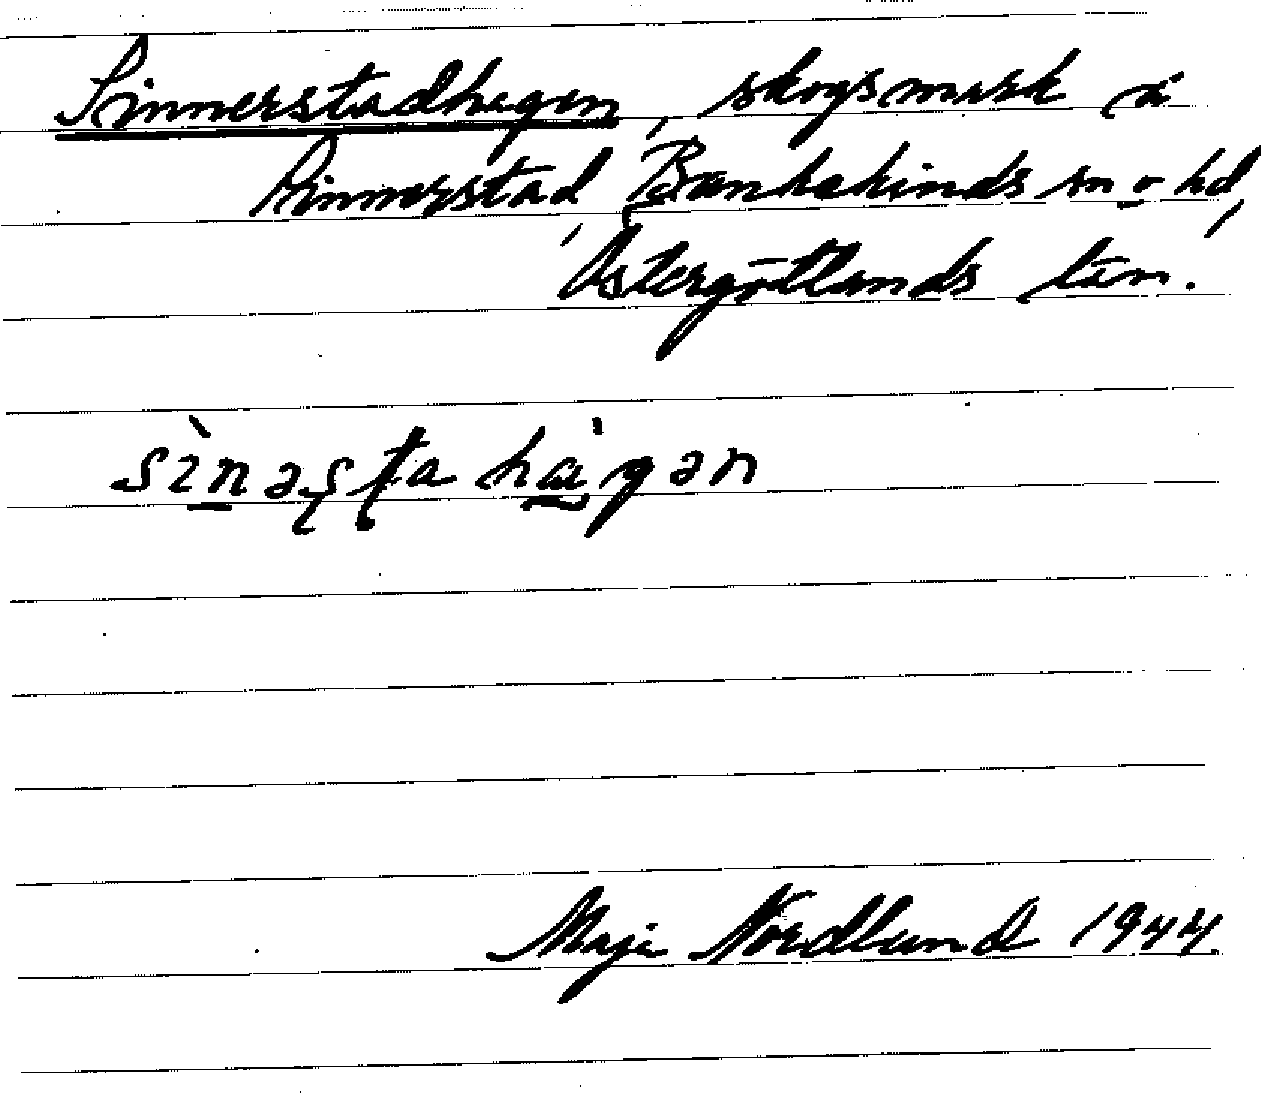 Sinnerstadhagen, skogsmark å
Sinnerstad, Bankekinds sn o hd,
Östergötlands län.
sìnəʂʈa hàgən
Maja Nordlund 1944.